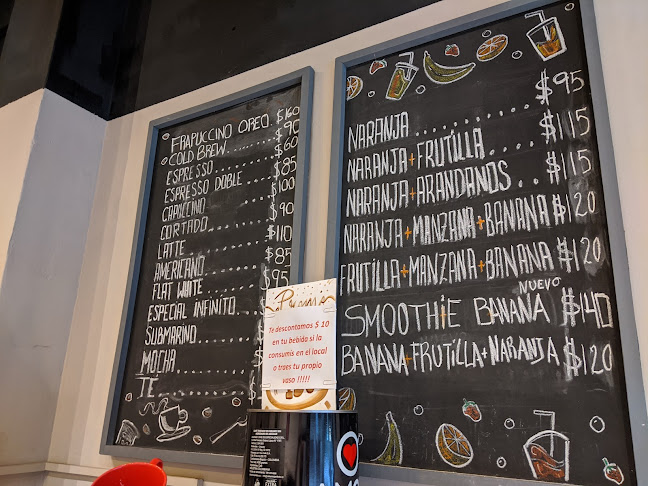 FRAPUCCINO OREO. $160
COLD BREW. $90
ESPRESSO $60
ESPRESSO DOBLE $85
CAPUCCINO $100
CORTADO $90
LATTE $110
AMERICANO $85
FLAT WHITE $95
ESPECIAL INFINITO $
SUBMARINO $
MOCHA $
TÉ $
Te descontamos $ 10
en tu bebida si la
consumis en el local
o traes tu propio
vaso !!!!!
NARANJA $95
NARANJA+FRUTILLA $115
NARANJA+ARANDANOS $115
NARANJA+MANZANA+BANANA $120
FRUTILLA+MANZANA+BANANA $120
NUEVO
SMOOTHIE BANANA $140
BANANA+FRUTILLA+NARANJA $120